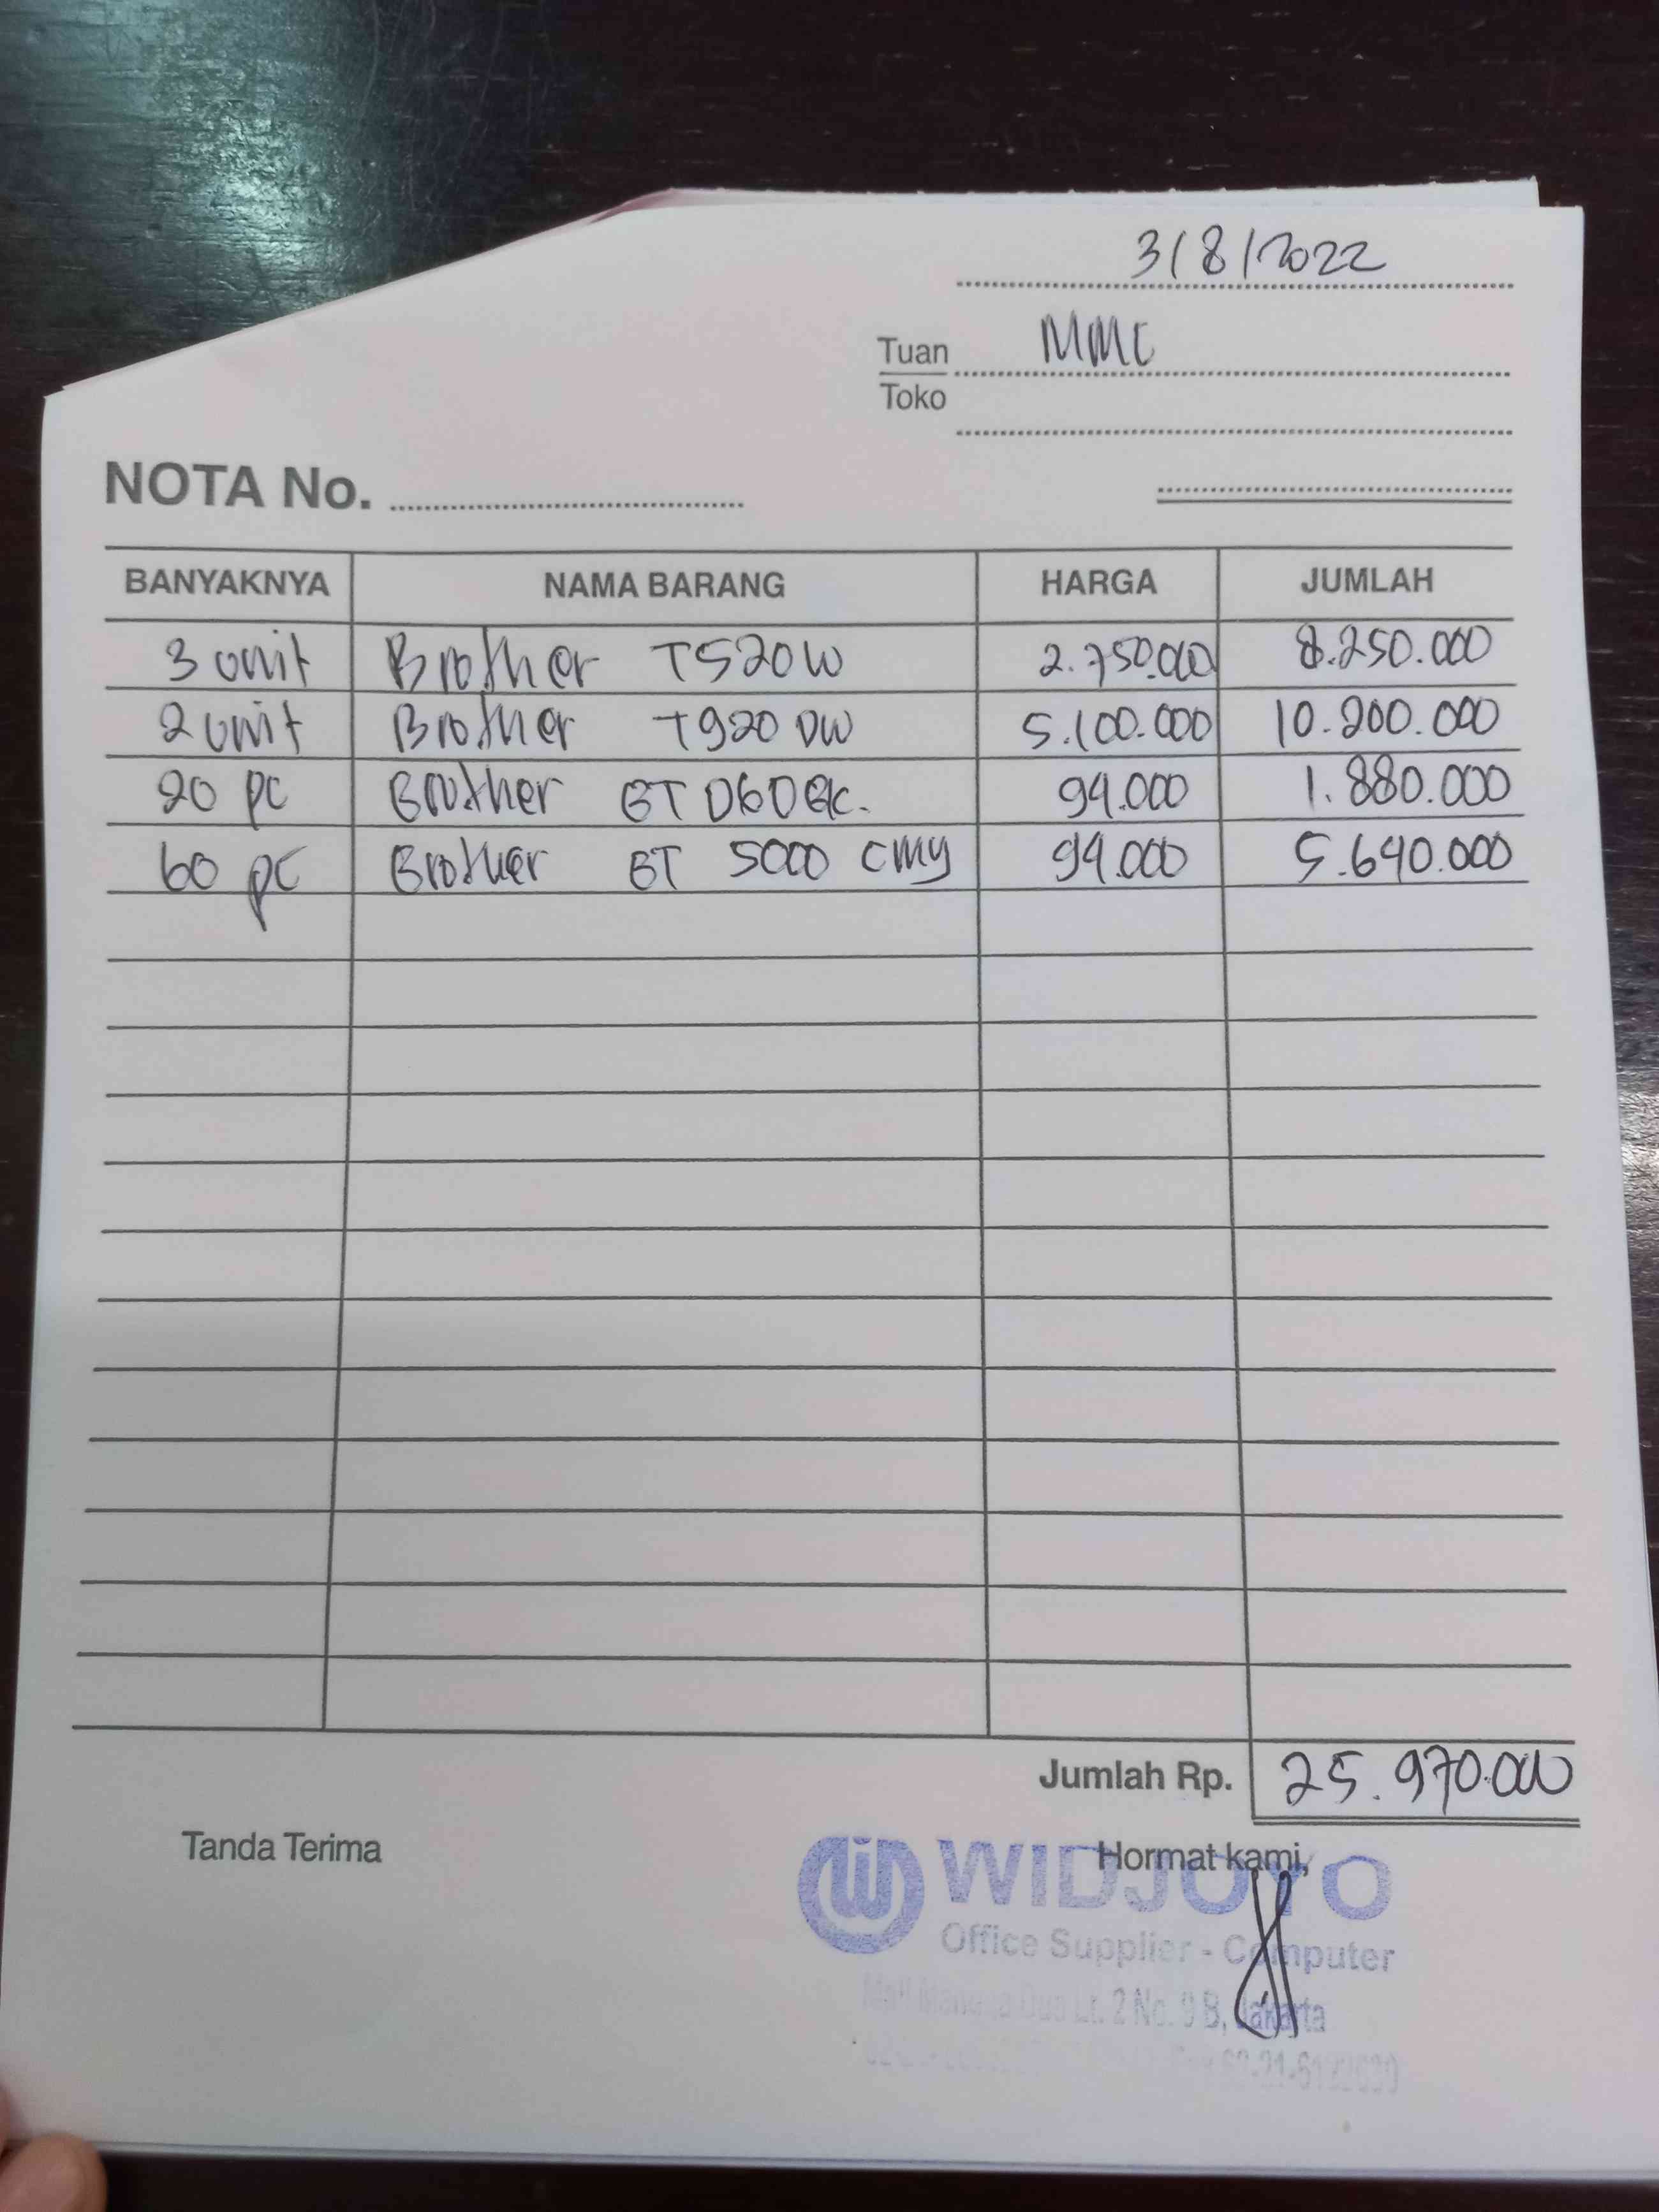 3/8/2022
Tuan MMC
Toko
NOTA No.
BANYAKNYA NAMA BARANG HARGA JUMLAH
3 unit Brother T520W 2.750.000 8.250.000
2 unit Brother T920 DW 5.100.000 10.200.000
20 pc Brother BT D60BK. 94.000 1.880.000
60 pc Brother BT 5000 CMY 94.000 5.640.000
Jumlah Rp. 25.970.000
Tanda Terima Hormat kami,
WIDJOYO
Office Supplier - Computer
Mall Mangga Dua Lt. 2 No. 9 B, Jakarta